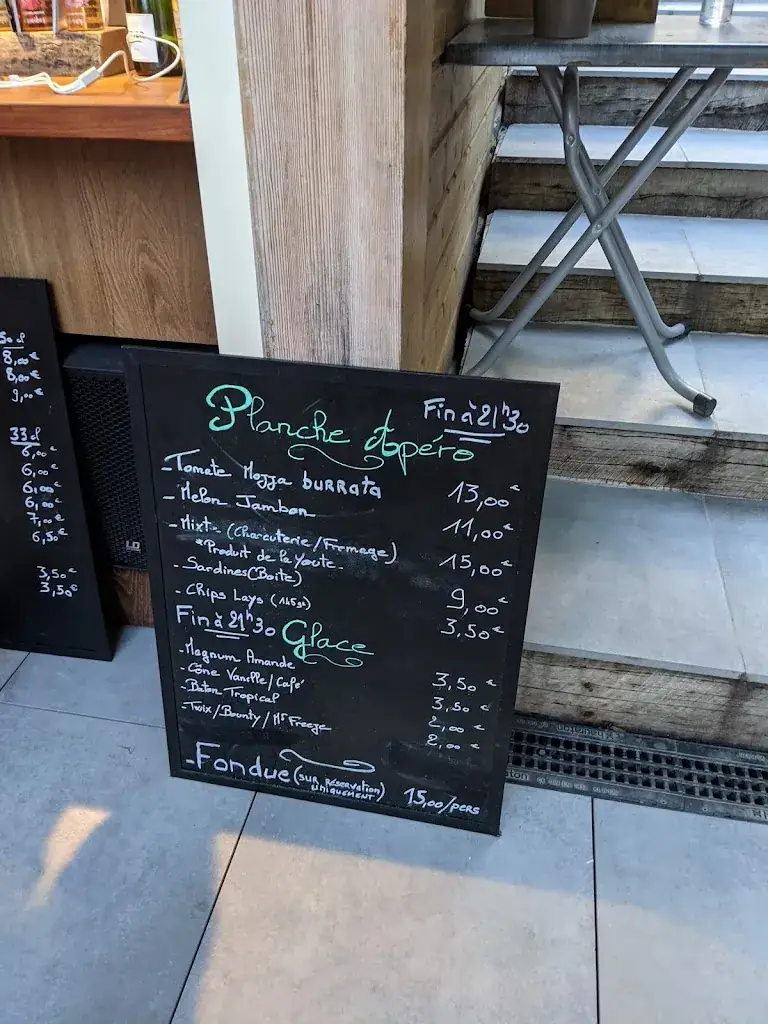 50 cl
8,00€
8,00€
9,00€
33 cl
6,00€
6,00€
6,00€
6,00€
7,00€
6,50€
3,50€
3,50€
LD
Planche Apéro
Fin à 21h30
- Tomate Mozza burrata 13,00€
- Melon Jambon 11,00€
- Mixte (Charcuterie/Fromage) 15,00€
*Produit de la Yourte
- Sardines (Boîte) 9,00€
- Chips Lays (145gr) 3,50€
Fin à 21h30 Glace
- Magnum Amande 3,50€
- Cône Vanille/Café 3,50€
- Baton Tropical 2,00€
- Twix/Bounty/Mr Freeze 2,00€
- Fondue (SUR RÉSERVATION UNIQUEMENT) 15,00/PERS